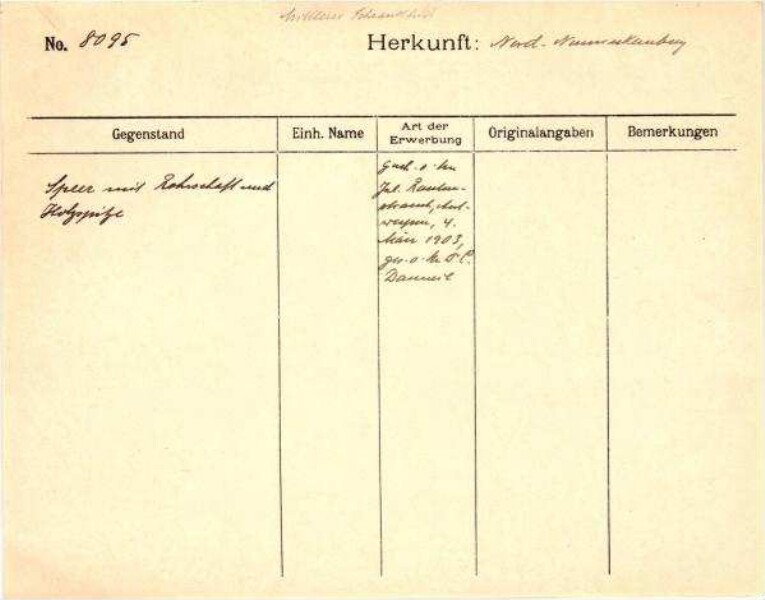 No. 8095
Herkunft: Nord-Neumecklenburg
Gegenstand
Einh. Name
Art der Erwerbung
Originalangaben
Bemerkungen
Speer mit Rohrschaft und
Holzspitze
Gesch. v. Hrn
Jul. Rauten-
strauch, Ant-
werpen, 4.
März 1903,
ges. v. Hr. T. C.
Danneil